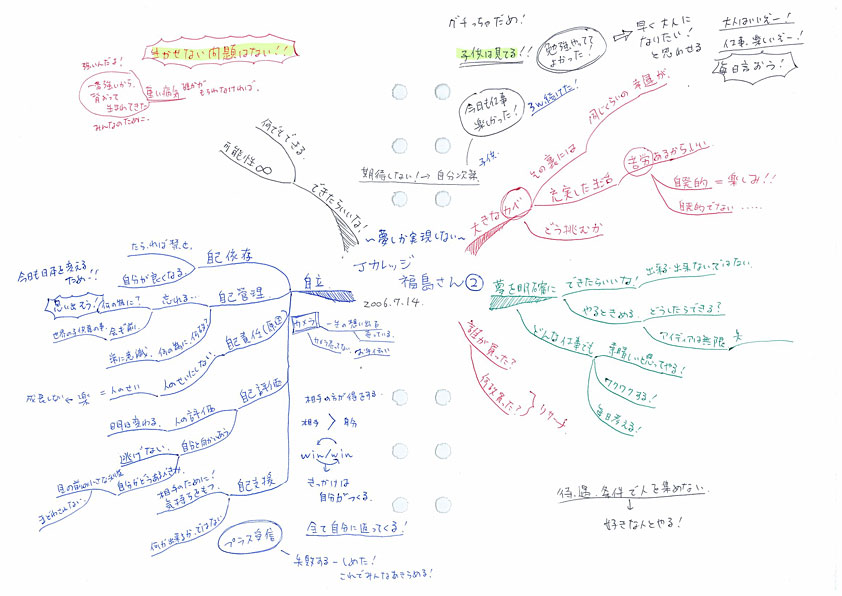 グチっちゃだめ！
生かせない問題はない！！
強いんだよ！
一番強いから、
背おって
生まれてきた
みんなのために。
重い病気
誰かがもらわなければ。
子供は見てる！！
勉強やってて
よかった！
⇒ 早く大人に
なりたい！
と思わせる
大人はいいぞー！
仕事、楽しいぞー！
毎日言おう！
今日も仕事
楽しかった！
３W続けた！
子供
何でもできる。
可能性∞
できたらいいな！
期待しない！→自分次第
〜夢しか実現しない〜
Jカレッジ
福島さん②
2006.7.14.
大きなカベ
その裏には
同じくらいの幸運が、
充実した生活
苦労あるからいい
自発的＝楽しみ！！
自発的でない……
どう挑むか
自立
自己依存
たら、れば
自分が良くなる
自己管理
忘れる…
何の為に？
思い出そう！
今日も日本を変える
ため！！
自己責任(原因)
何の為に、何故？
常に意識、
人のせいにしない
人のせい
＝楽
成長しない
自己評価
人の評価
明日は変わる。
自分と向かいあう
逃げない。
自己支援
相手のために！
気持ちをもつ。
自分がどうあるべきか
何が出来るか、ではない
カメラ
一生の想い出を
売っている。
お手伝い
相手の方が得をする。
相手＞自分
win/win
きっかけは
自分がつくる。
全て自分に返ってくる！
プラス受信
失敗する－しめた！
これでみんなあきらめる！
夢を明確に
できたらいいな！
出来る・出来ないではない。
やるときめる
どうしたらできる？
アイディアは無限
どんな仕事でも
素晴しいと思ってやる！
ワクワクする！
毎日考える！
誰が買った？
何故買った？
リサーチ
待遇、条件で人を集めない。
↓
好きな人とやる！